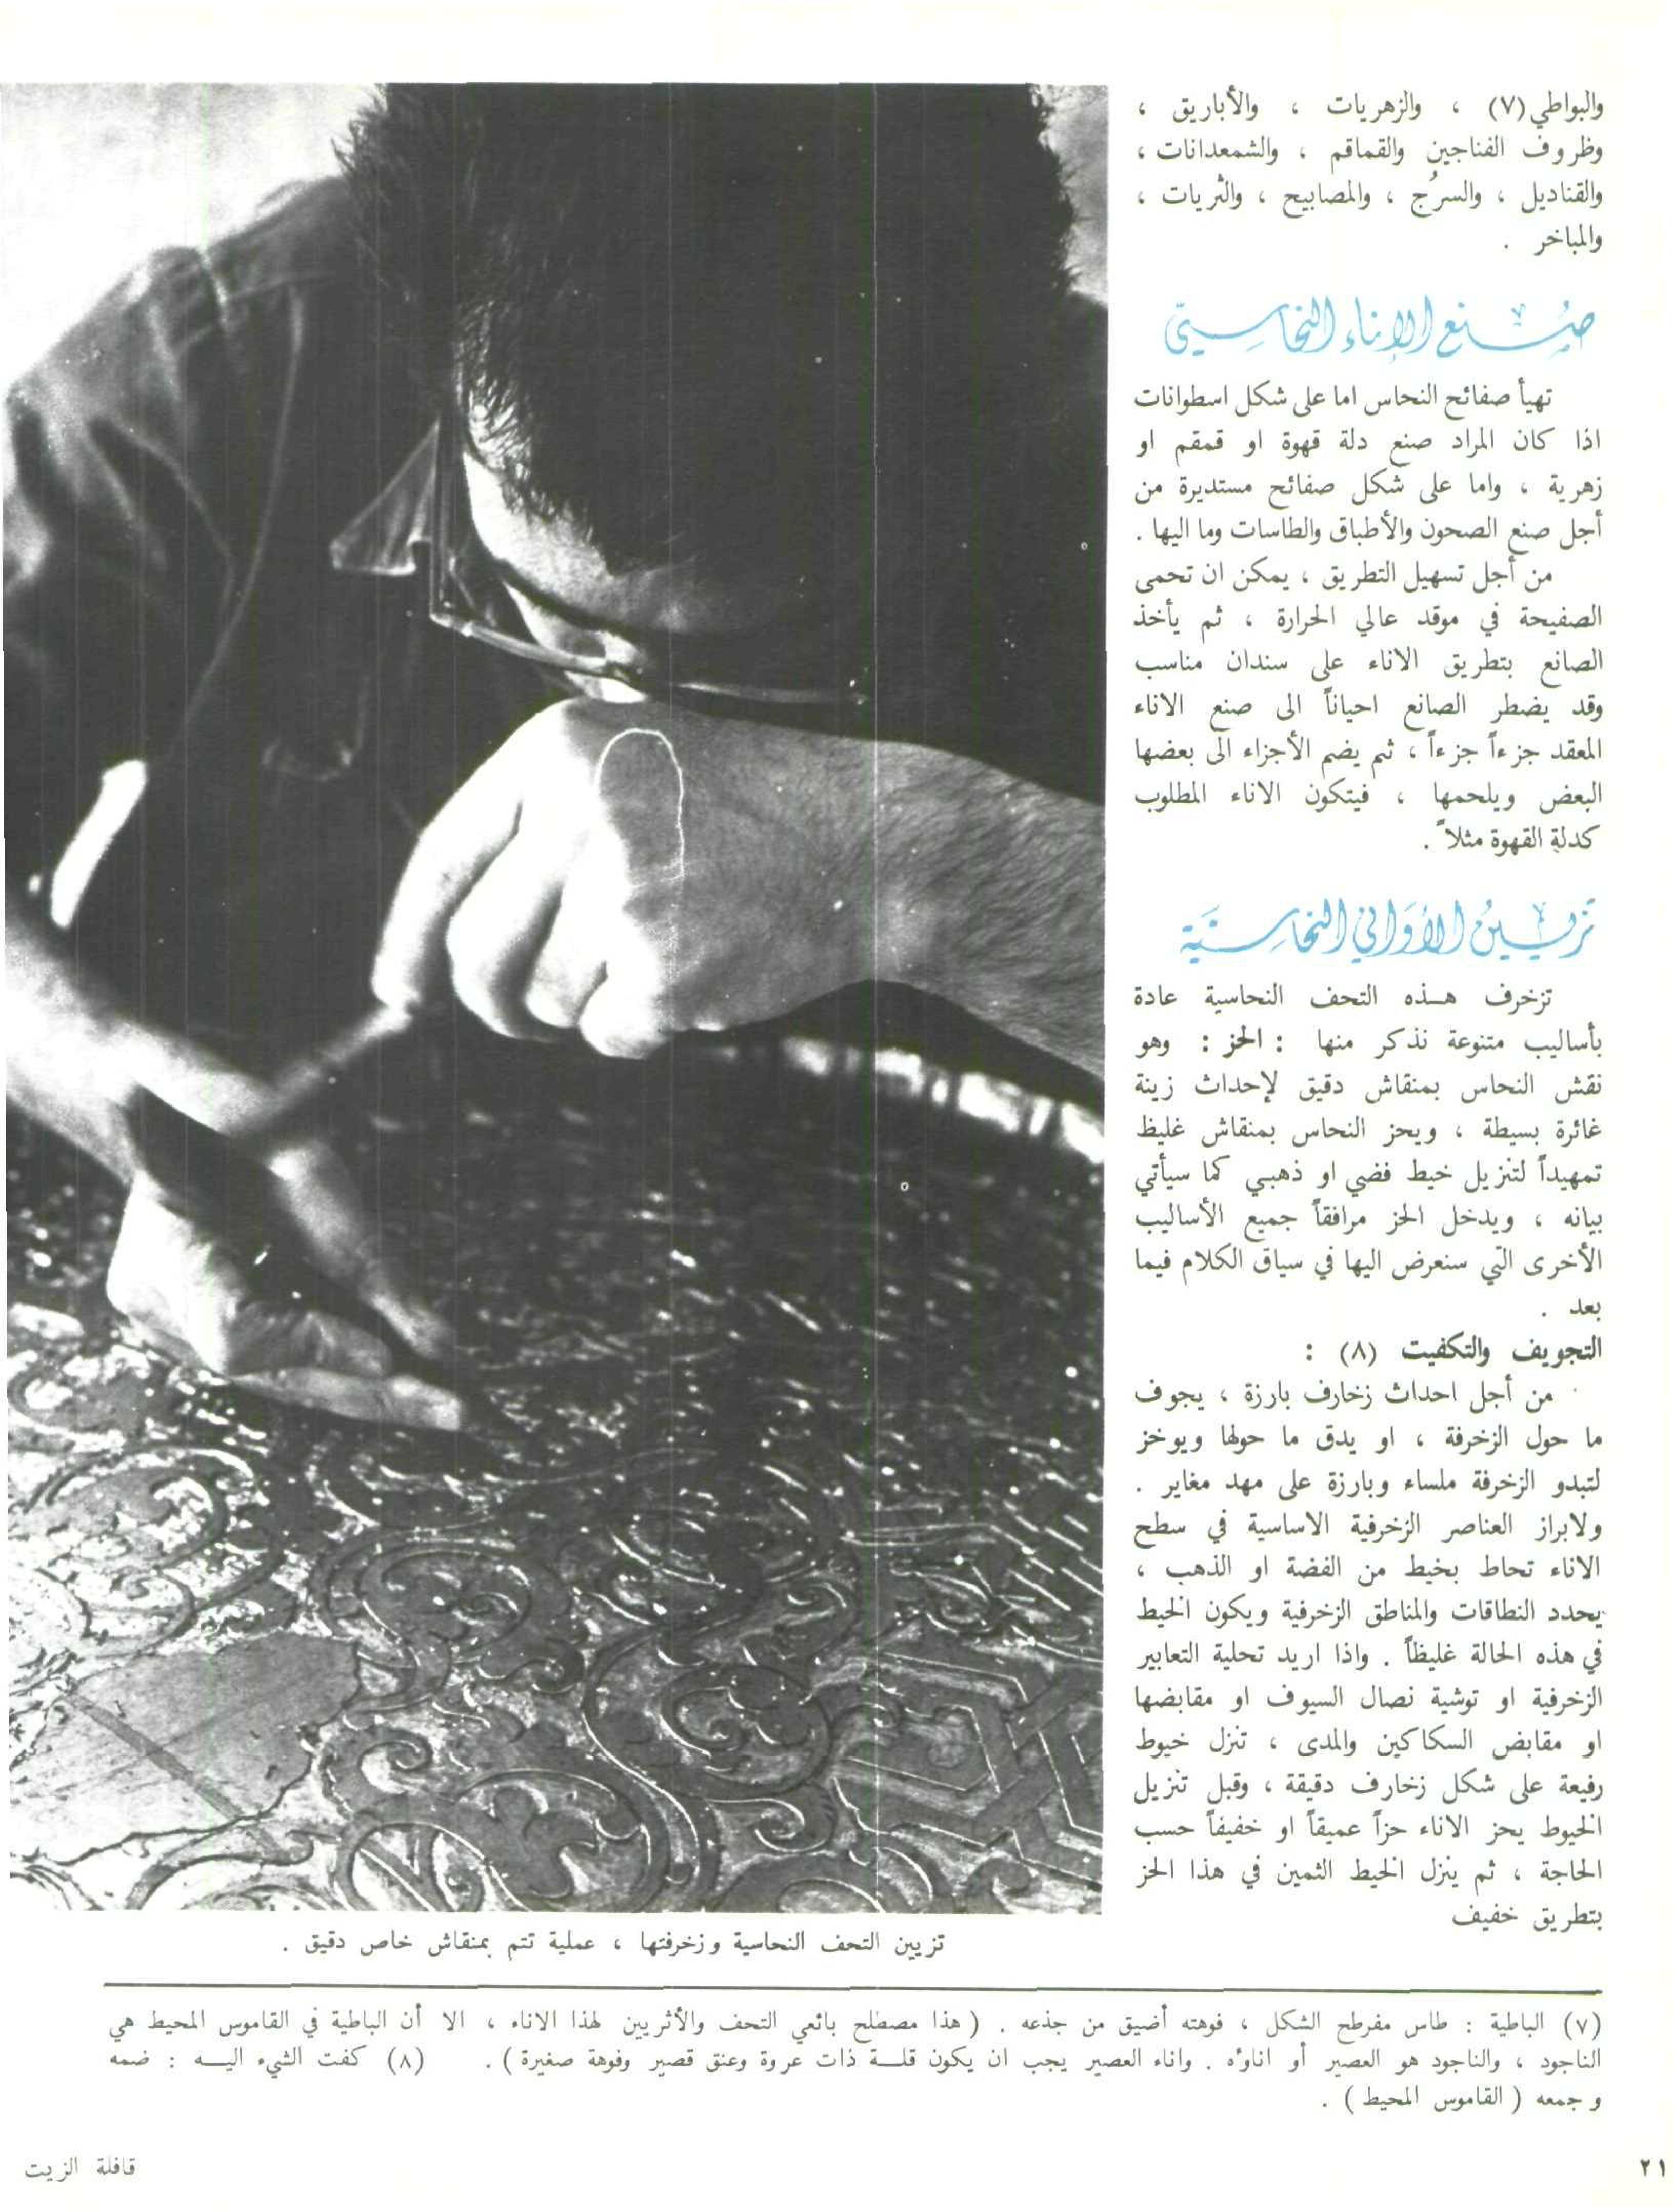 والبواطي(٧) ، والزهريات ، والأباريق ،
وظروف الفناجين والقماقم ، والشمعدانات ،
والقناديل ، والسرُج ، والمصابيح ، والثريات ،
والمباخر .
صُنع الإناء النحاسيّ
تهيأ صفائح النحاس اما على شكل اسطوانات
اذا كان المراد صنع دلة قهوة او قمقم او
زهرية ، واما على شكل صفائح مستديرة من
أجل صنع الصحون والأطباق والطاسات وما اليها .
من أجل تسهيل التطريق ، يمكن ان تحمى
الصفيحة في موقد عالي الحرارة ، ثم يأخذ
الصانع بتطريق الاناء على سندان مناسب
وقد يضطر الصانع احياناً الى صنع الاناء
المعقد جزءاً جزءاً ، ثم يضم الأجزاء الى بعضها
البعض ويلحمها ، فيتكون الاناء المطلوب
كدلة القهوة مثلاً .
تزيينُ الأوَاني النحاسيَّة
تزخرف هـذه التحف النحاسية عادة
بأساليب متنوعة نذكر منها : الحز : وهو
نقش النحاس بمنقاش دقيق لإحداث زينة
غائرة بسيطة ، ويحز النحاس بمنقاش غليظ
تمهيداً لتنزيل خيط فضي او ذهبي كما سيأتي
بيانه ، ويدخل الحز مرافقاً جميع الأساليب
الأخرى التي سنعرض اليها في سياق الكلام فيما
بعد .
التجويف والتكفيت (٨) :
من أجل احداث زخارف بارزة ، يجوف
ما حول الزخرفة ، او يدق ما حولها ويوخز
لتبدو الزخرفة ملساء وبارزة على مهد مغاير .
ولابراز العناصر الزخرفية الاساسية في سطح
الاناء تحاط بخيط من الفضة او الذهب ،
يحدد النطاقات والمناطق الزخرفية ويكون الخيط
في هذه الحالة غليظاً . واذا اريد تحلية التعابير
الزخرفية او توشية نصال السيوف او مقابضها
او مقابض السكاكين والمدى ، تنزل خيوط
رفيعة على شكل زخارف دقيقة ، وقبل تنزيل
الخيوط يحز الاناء حزاً عميقاً او خفيفاً حسب
الحاجة ، ثم ينزل الخيط الثمين في هذا الحز
بتطريق خفيف
تزيين التحف النحاسية وزخرفتها ، عملية تتم بمنقاش خاص دقيق .
(٧) الباطية : طاس مفرطح الشكل ، فوهته أضيق من جذعه . ( هذا مصطلح بائعي التحف والأثريين لهذا الاناء ، الا أن الباطية في القاموس المحيط هي
الناجود ، والناجود هو العصير أو اناوْه . واناء العصير يجب ان يكون قلـــة ذات عروة وعنق قصير وفوهة صغيرة ) . (٨) كفت الشيء اليـــه : ضمه
و جمعه ( القاموس المحيط ) .
٢١
قافلة الزيت